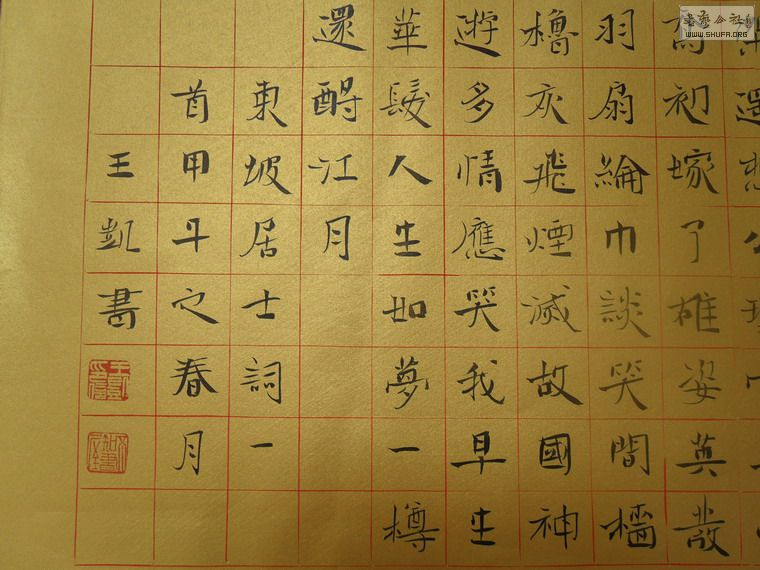 喬初嫁了雄姿英發
羽扇綸巾談笑間檣
櫓灰飛煙滅故國神
遊多情應笑我早生
華髮人生如夢一樽
還酹江月
東坡居士詞一
首甲午之春月
王凱書
書藝公社
WWW.SHUFA.ORG